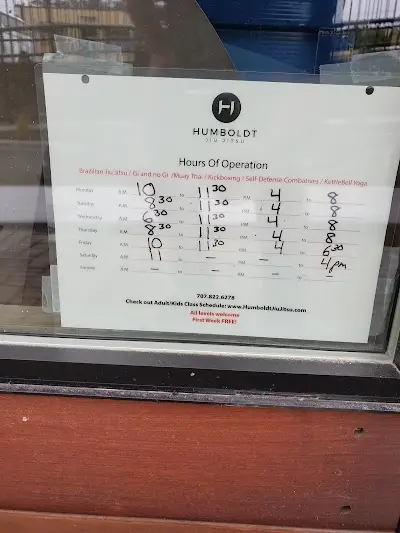 H
HUMBOLDT
JIU JITSU
Hours Of Operation
Brazilian Jiu Jitsu / Gi and no Gi /Muay Thai / Kickboxing / Self Defense Combatives / KettleBell Yoga
Monday A.M 10 to 11 30 P.M 4 to 8
Tuesday A.M 8 30 to 11 30 P.M 4 to 8
Wednesday A.M 6 30 to 11 30 P.M 4 to 8
Thursday A.M 8 30 to 11 30 P.M 4 to 8
Friday A.M 10 to 11 30 P.M 4 to 6 30
Saturday A.M 11 to - P.M - to 4 pm
Sunday A.M - to - P.M - to -
707.822.6278
Check out Adult/Kids Class Schedule: www.HumboldtJiuJitsu.com
All levels welcome
First Week FREE!